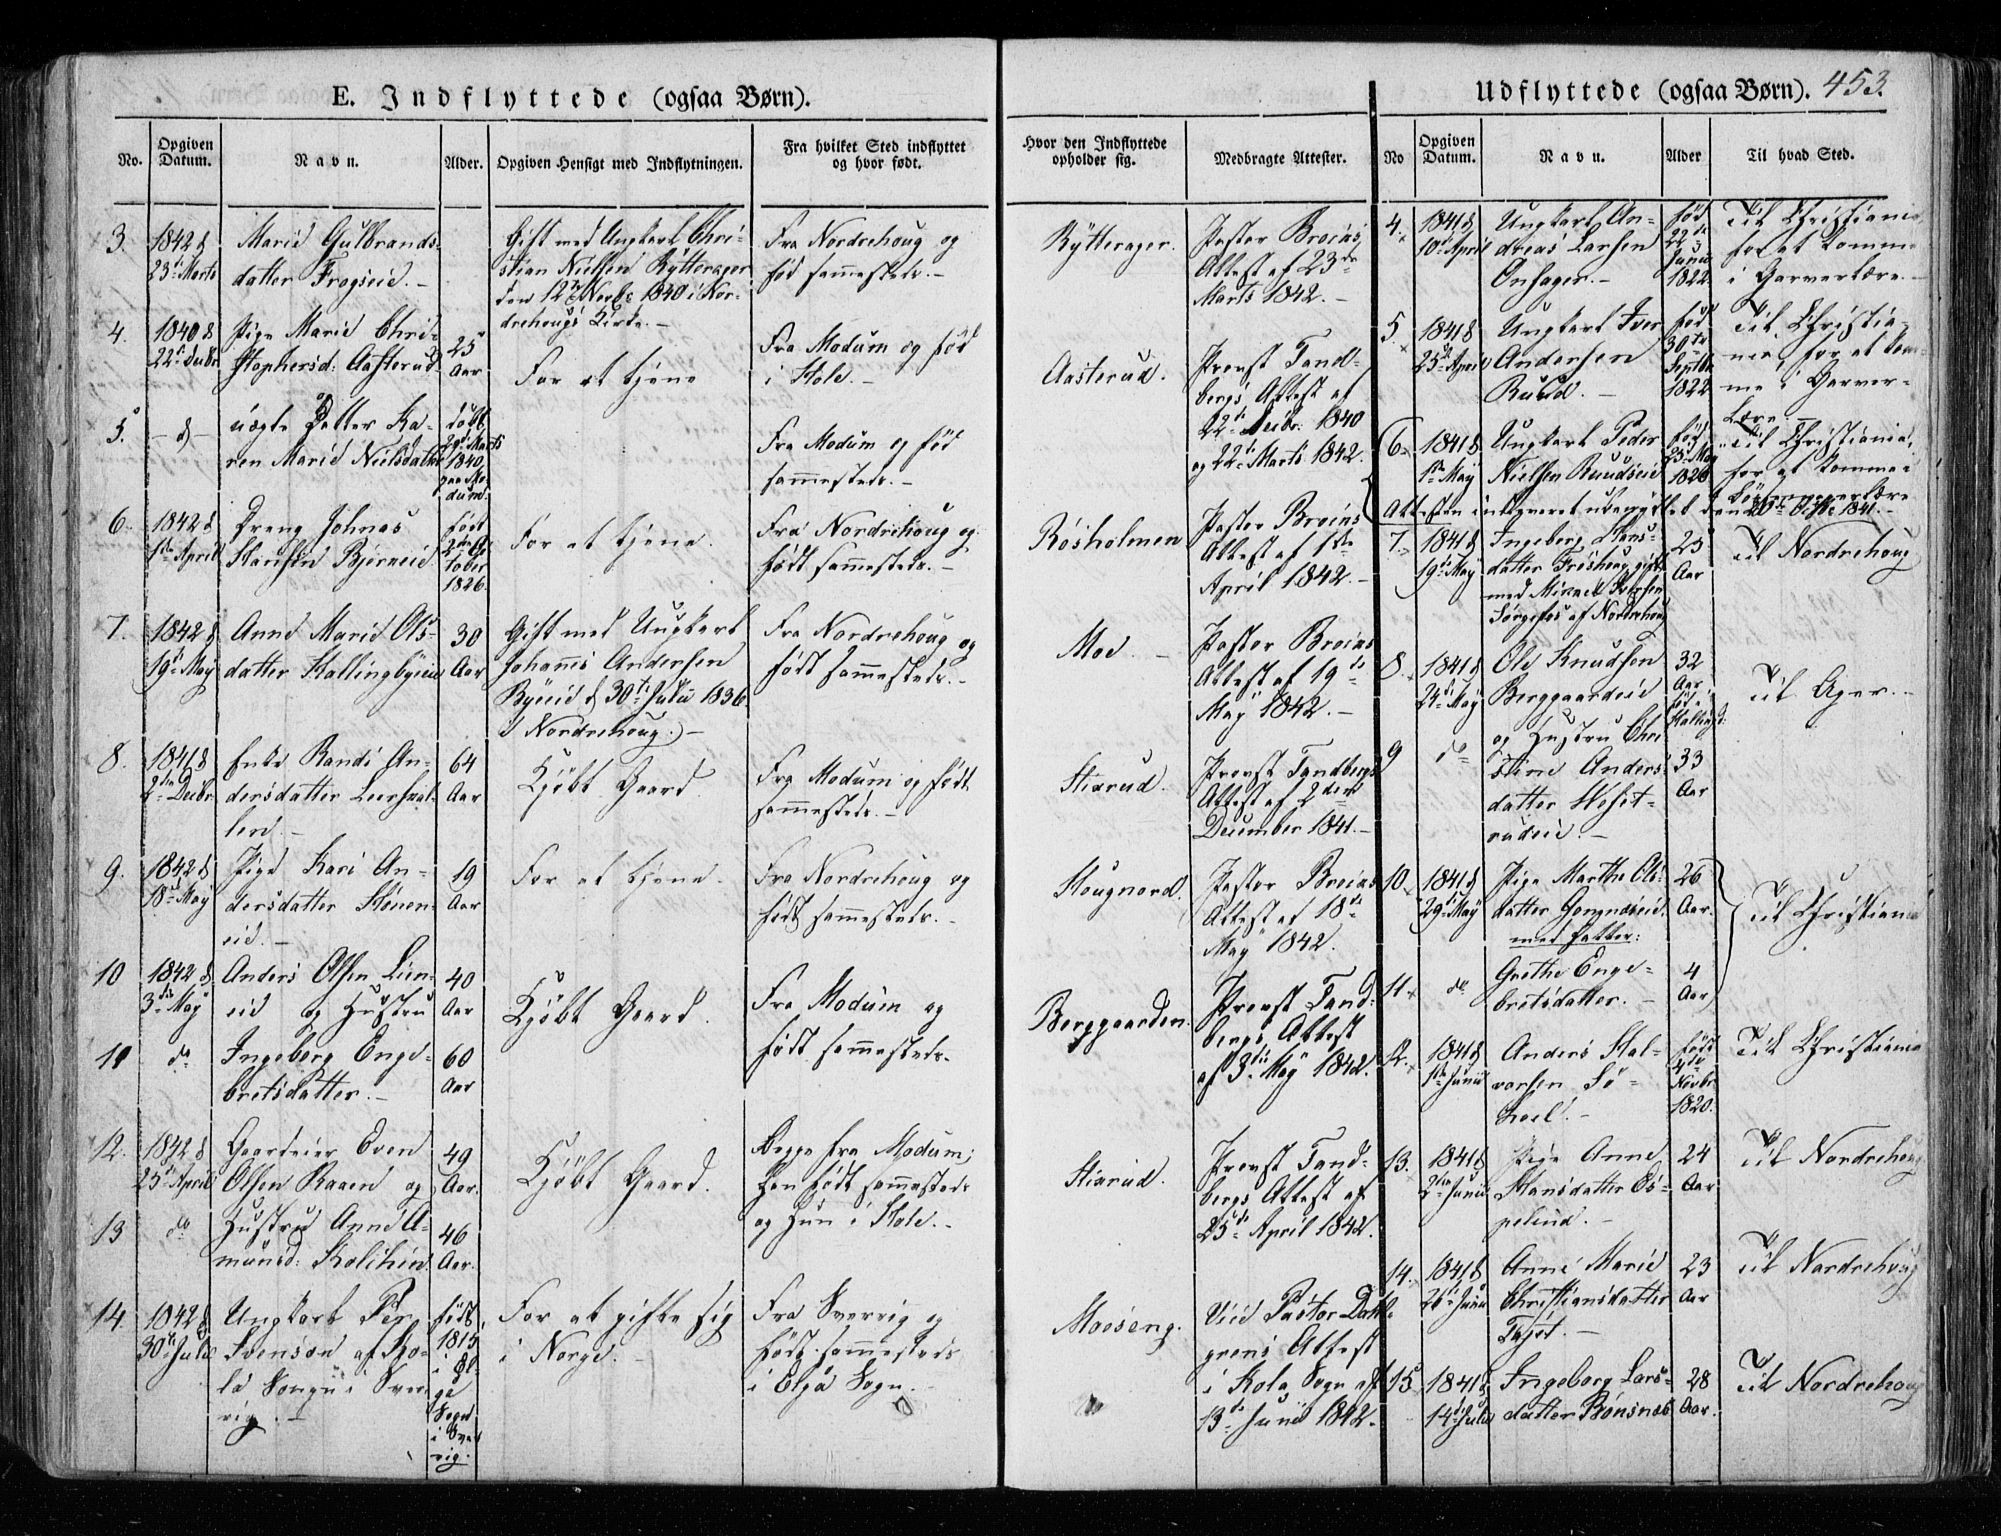 E. Indflyttede (ogsaa Børn).
No.
Opgiven Datum.
Navn.
Alder.
Opgiven Hensigt med Indflytningen.
Fra hvilket Sted indflyttet og hvor født.
Hvor den Indflyttede opholder sig.
Medbragte Attester.
3.
1842 d
23de Marts
Marie Gulbrands-
datter Frogseie.
Gift med Ungkarl Chri-
stian Nielsen Rytterager
den 12te Novbr 1840 i Nor-
drehougs Kirke.
Fra Nordrehoug og
fød sammesteds.
Rytterager.
Pastor Broins
Attest af 23de
Marts 1842.
4.
1840 d
22de Decbr
Pige Marie Chri-
stophersd: Aasterud
25
Aar
For at tjene
Fra Modum og fød
i Hole.
Aasterud.
Provst Tand-
bergs Attest af
22de Decbr. 1840
og 22de Marts 1842.
5.
d
uægte Datter Ka-
ren Marie Nielsdatter
døbt
29de Marts
1840
paa Mo-
dum.
Fra Modum og fød
sammesteds.
6.
1842 d
1ste April
Dreng Johnas
Hansen Bjerneie
født
2den Oc-
tober
1826.
For at tjene.
Fra Nordrehoug og
født sammesteds.
Røsholmen
Pastor Broins
Attest af 1ste
April 1842.
7.
1842 d
19de May
Anne Marie Ols-
datter Hallingbyeie
30
Aar
Gift med Ungkarl
Johannes Andersen
Byeeie d 30te Julii 1836
i Nordrehoug.
Fra Nordrehoug og
født sammesteds.
Moe.
Pastor Broins
Attest af 19de
May 1842.
8.
1841 d
2den Decbr
Enke Randi An-
dersdatter Leershal-
len.
64
Aar
Kjøbt Gaard
Fra Modum og født
sammesteds.
Stixrud.
Provst Tandbergs
Attest af 2den
December 1841.
9.
1842 d
18de May
Pige Kari An-
dersdatter Hønen-
eie.
19
Aar
For at tjene.
Fra Nordrehoug og
født sammesteds.
Hougnord.
Pastor Broins
Attest af 18de
May 1842.
10
1842 d
3die May
Anders Olsen Lien-
eie og Hustru
40
Aar
Kjøbt Gaard.
Fra Modum og
født sammesteds.
Berggaarden.
Provst Tand-
bergs Attest
af 3die May 1842.
11
do
Ingeborg Enge-
bretsdatter.
60
Aar
12.
1842 d
25de April
Gaardeier Even
Olsen Raaen og
49
Aar.
Kjøbt Gaard.
Begge fra Modum;
Han født sammesteds
og Hun i Hole.
Stixrud.
Provst Tand-
bergs Attest af
25de April 1842.
13
do
Hustru Anne A-
munsd: Kolihin
46
Aar.
14.
1842 d
30te Julii
Ungkarl Per
Svenson af Ko-
la Songn i Sver-
rig.
født
1815
i El-
ga
Sogn
i Sver
rig.
For at gifte sig
i Norge.
Fra Sverrig og
født sammesteds
i Elga Sogn.
Moeseng.
Vice Pastor Dahl-
grens Attest
i Kola Sogn af
13de Junii 1842.
Udflyttede (ogsaa Børn). 453.
No
Opgiven Datum.
Navn.
Alder
Til hvad Sted.
4.
1841 d
10de April
Ungkarl An-
dreas Larsen
Onsager.
fød
22de
Junii
1822.
Til Christiania
for at komme
i Garverlære.
5
1841 d
25de April
Ungkarl Iver
Andersen
Ruud.
fød
30te
Septbr
1822
Til Christia-
nia, for at kom-
me i Garver-
lære.
6.
1841 d
1ste May
Ungkarl Peder
Nielsen Ruudseie
fød
25de May
1826
Til Christiania,
for at komme i
Attesten indleveret ubenyttet den 20de Octbr 1841.
7.
1841 d
19de May
Ingeborg Hans-
datter Frøshoug gift
med Mikael Iversen
Sørgefos af Norderhoug
25
Aar
Til Nordrehoug
8.
1841 d
24de May
Ole Knudsen
Berggaardeie
og Hustru Chri-
32
Aar
Til Ager.
9
do
stine Anders-
datter
33
Aar
10.
1841 d
29de May
Pige Marthe Ols-
datter Gomnæseie.
med Datter:
26
Aar.
Til Christiania
11.
do
Grethe Enge-
bretsdatter.
4
Aar
12.
1841 d
1ste Junii
Anders Hal-
vorsen Sø-
hoel.
født
4de
Novbr
1820.
Til Christiania
13.
1841 d
2den Junii
Pige Anne
Hansdatter Es-
pelund.
24
Aar
Til Nordrehoug
14.
1841 d
26de Junii
Anne Marie
Christiansdatter
Fagst.
23
Aar
Til Nordrehoug
15
1841 d
14de Julii
Ingeborg Lars-
datter Bønsnæs
28
Aar.
Til Nordrehoug